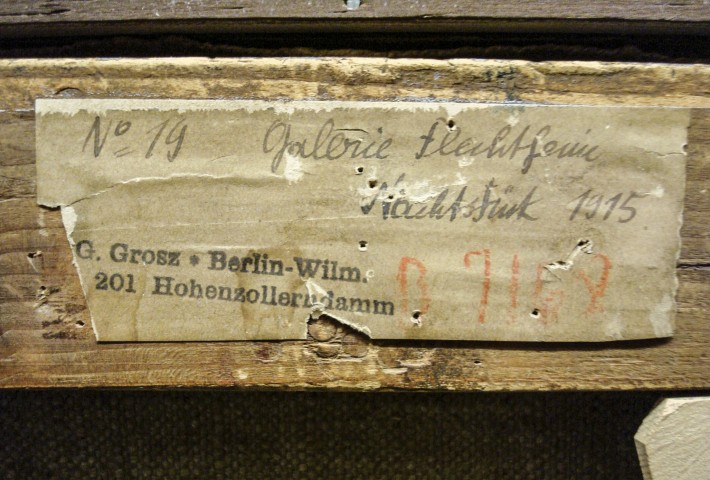 Nº 19 Galerie Flechtheim
Nachtstück 1915
G. Grosz * Berlin-Wilm.
201 Hohenzollerndamm